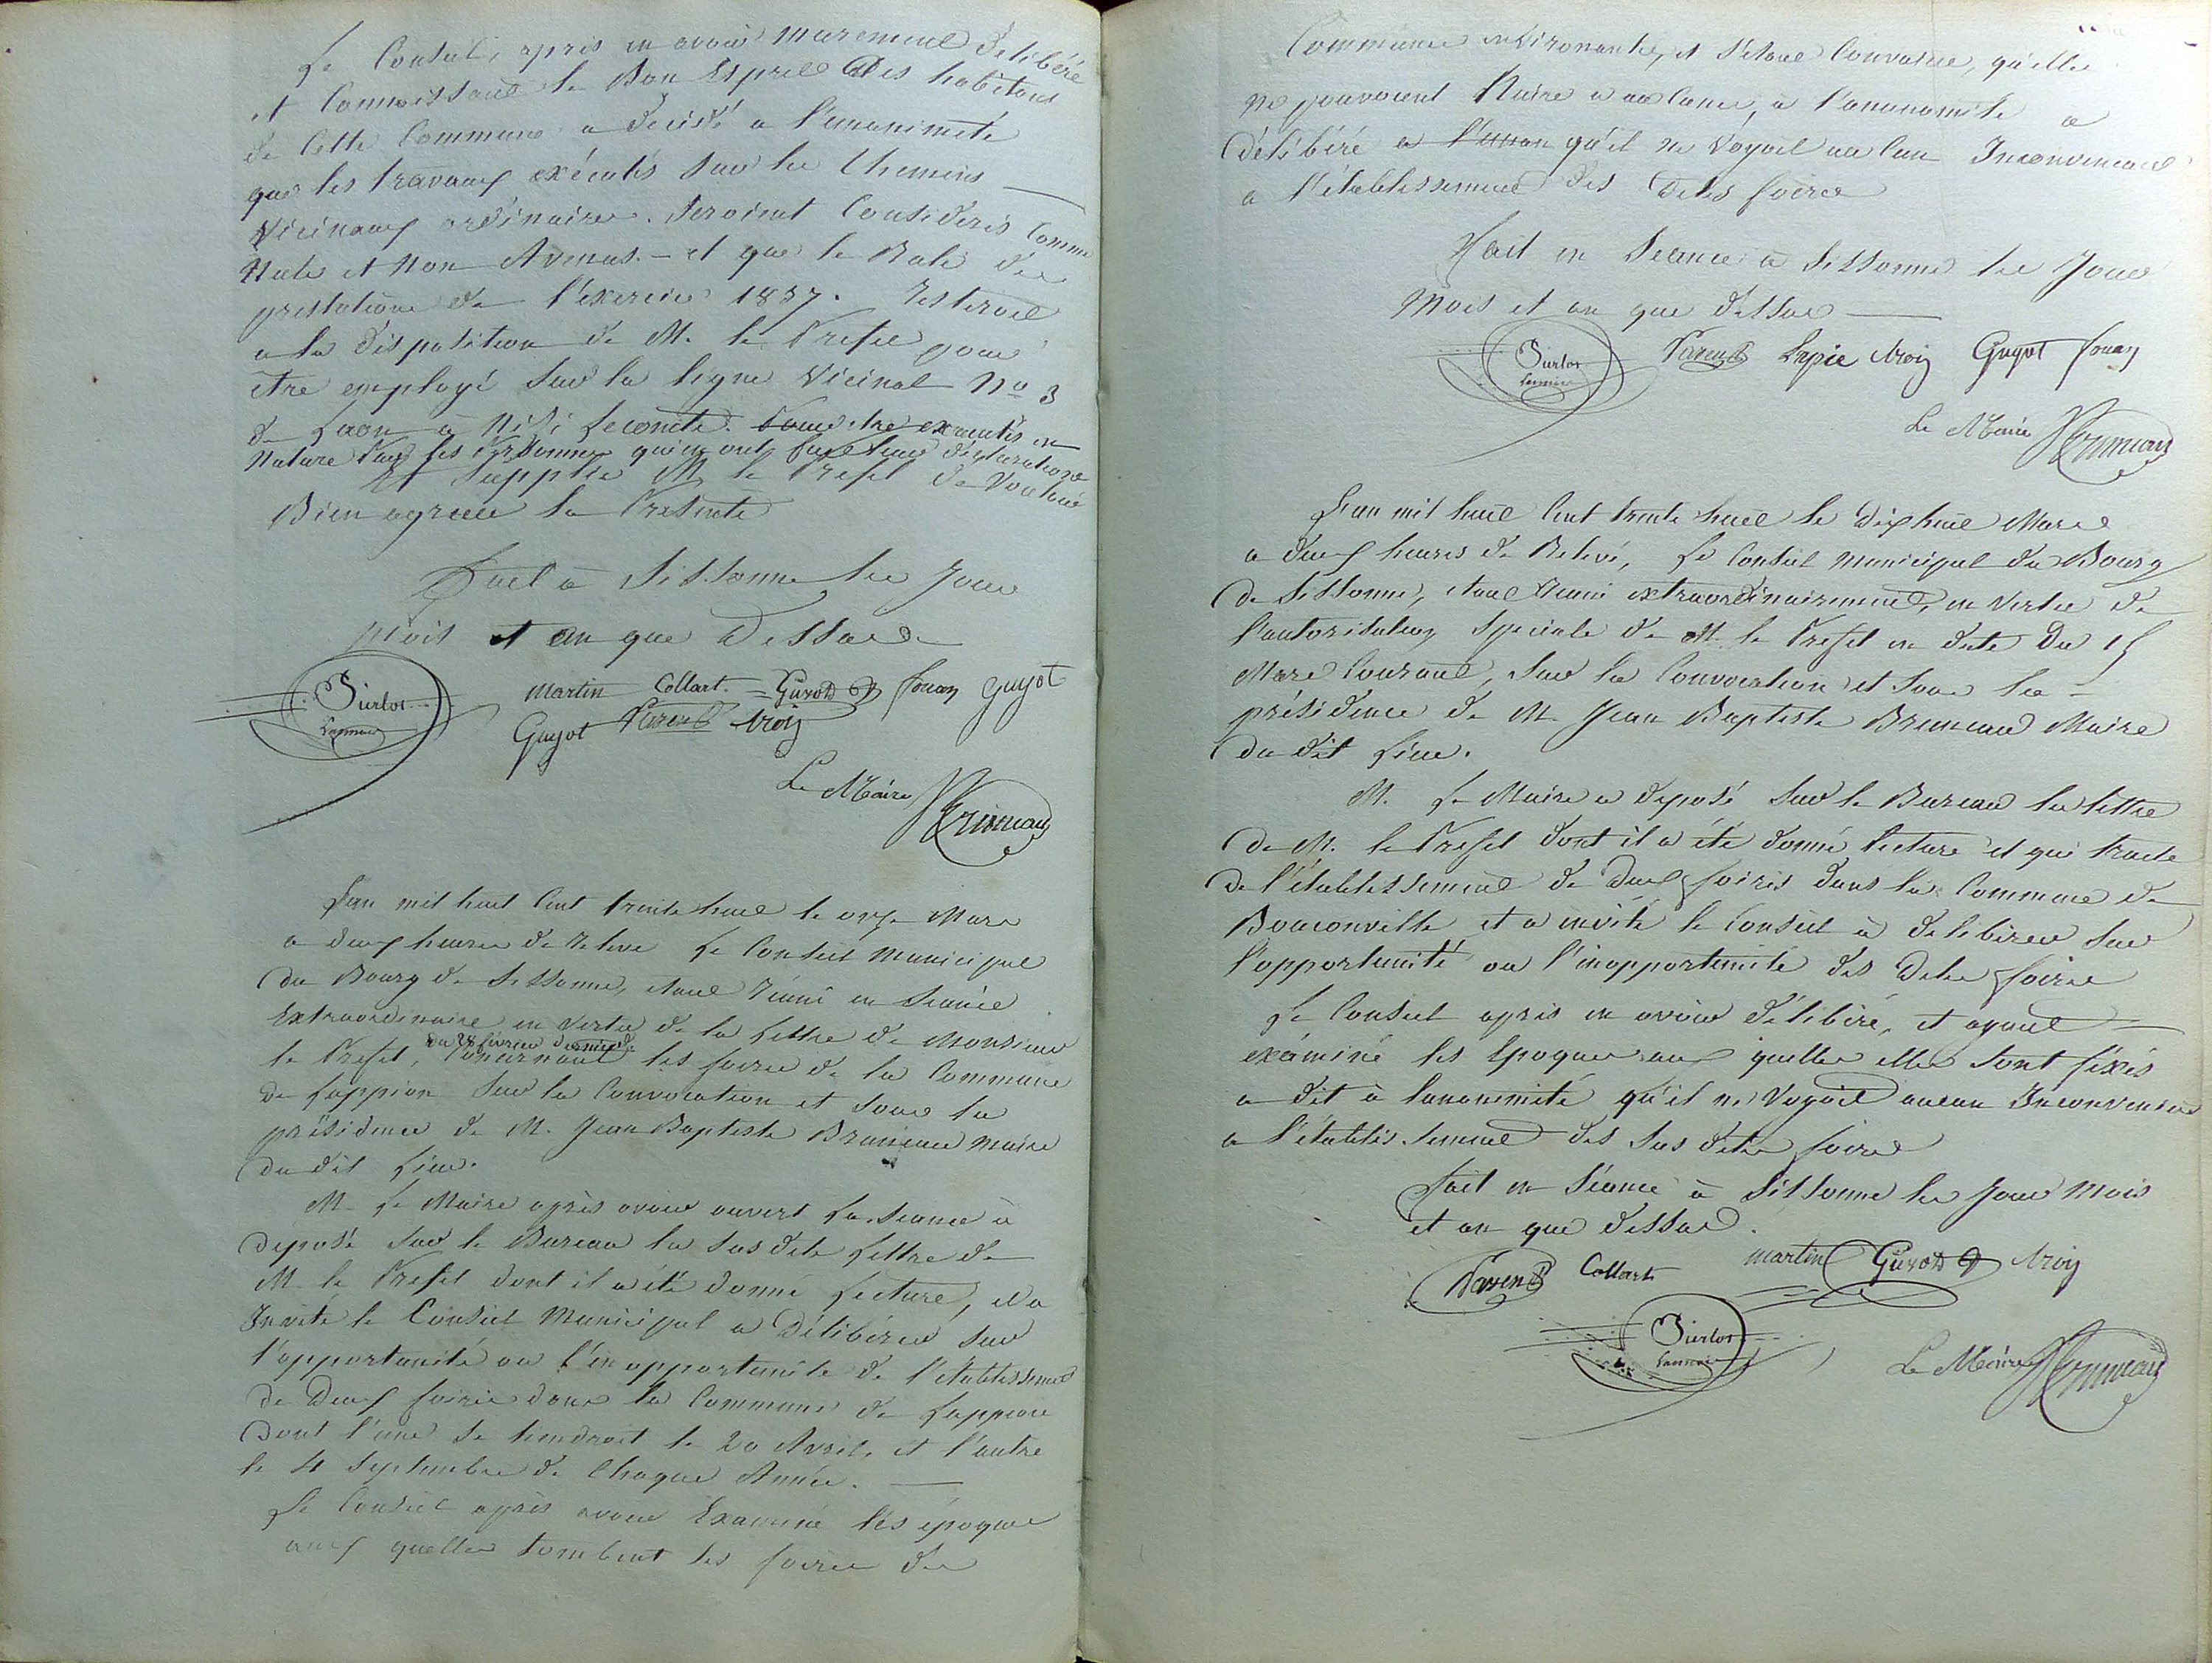 Le Conseil, apris en avoir murement delibéré
et Connoissant le Bon Esprit Des habitans
de Cette Commune a decidé a l'unanimité
que les travaux exécutés sur les Chemins
Vicinaux ordinaires. seroient Considerés Comme
Nuls et Non Avenus. - et que le Role des
prestations de l'exercice 1837. resteroit
a la disposition de M. le Prefet pour
être employé sur la ligne Vicinal No 3
de Laon à Nisi Lecomte. Pour etre executés en
Nature Par les Personnes qui en ont fait leur déclaration
Et supplie M. le Prefet de Vouloir
Bien agreer la Presente
Fait à Sissonne les Jour
Mois et an que Dessus
Surlot martin Collart Guyot Fouan Guyot
Guyot Parent
Le Maire Bruneau
L'an mil huit Cent trente huit le onze Mars
a deux heures de releve Le Conseil Municipal
du Bourg de Sissonne, etant réuni en Seance
Extraordinaire en Vertu de la Lettre de Monsieur
le Prefet, du 28 fevrier dernier Concernant les foires de la Commune
de Lappion sur la Convocation et sous la
présidence de M. Jean Baptiste Bruneau Maire
du dit Lieu.
M. Le Maire après avoir ouvert La Seance à
deposé sur le Bureau la sus dite Lettre de
M. le Prefet dont il a été donné Lecture, et a
Invité le Conseil Municipal a Délibérer sur
l'opportunité ou l'inopportunité de l'établissement
de Deux foires dans la Commune de Lappion
Dont l'une se tiendroit le 20 Avril, et l'autre
le 4 Septembre de Chaque Année.
Le Conseil après avoir Examiné les époques
aux quelles tombent les foires des
Communes environantes, et s'etant Convaincu, qu'elles
ne pouvoient Nuire a au Cune, à l'ununimité a
délibéré a l'unan qu'il ne Voyoit au Cun Inconvenient
a l'établissement des Dites foires
Fait en Seance à Sissonne les Jour
Mois et an que dessus
Surlot Parent Lepie Guyot Fouan
Le Maire Bruneau
L'an mil huit Cent trente huit le Dix huit Mars
a deux heures de Relevé, Le Conseil Municipal du Bourg
de Sissonne, etant Reuni extraordinairement, en Vertu de
l'autorisation speciale de M. le Prefet en date Du 15
Mars Courant, sur la Convocation et sous la
présidence de M. Jean Baptiste Bruneau Maire
du dit Lieu.
M. Le Maire a deposé sur le Bureau la lettre
de M. le Prefet dont il a été donné lecture et qui traite
de l'établissement de Deux foires dans la Commune de
Bouconville et a invité le Conseil à delibérer sur
l'opportunité ou l'inopportunité des Dites foires
Le Conseil après en avoir délibéré, et ayant
exáminé les Epoques aux quelles elles sont fixés
a dit à lunanimité qu'il ne Voyoit aucun Inconvenient
a l'établissement des sus dites foires
Fait en Séance à Sissonne les Jour Mois
et an que dessus.
Parent Collart martin Guyot
Surlot
Le Maire Bruneau